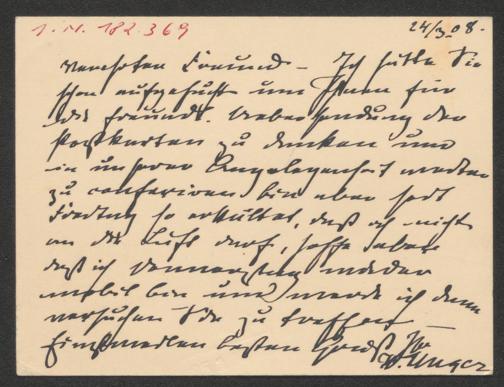 I.N. 182.369
24/3. 08.
Verehrter Freund – Ich hätte Sie
schon aufgesucht um Ihnen für
die freundl. Uebersendung der
Postkarten zu danken und
in unserer Angelegenheit weiter
zu conferiren bin aber seit
Freitag so erkältet, daß ich nicht
an die Luft darf, hoffe daher
daß ich Donnerstag wieder
mobil bin und werde ich dann
versuchen Sie zu treffen –
Einstweilen besten Gruß Ihr
W. Unger